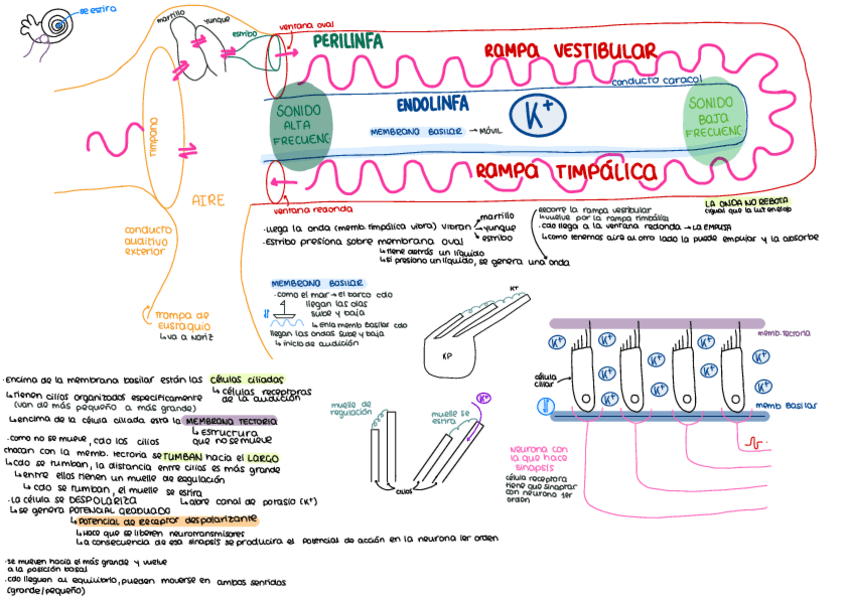 se estira
martillo
yunque
estribo
ventana oval
PERILINFA
RAMPA VESTIBULAR
conducto caracol
SONIDO
ALTA
FRECUENC
ENDOLINFA
K+
MEMBRANA BASILAR → MÓVIL
SONIDO
BAJA
FRECUENC
TIMPANO
RAMPA TIMPÁLICA
AIRE
ventana redonda
conducto
auditivo
exterior
trompa de
eustaquio
↳va a nariz
·llega la onda (memb. timpálica vibra) vibran
martillo
yunque
estribo
·Estribo presiona sobre membrana oval
↳tiene detrás un líquido
↳si presiona un líquido, se genera una onda
recorre la rampa vestibular
·vuelve por la rampa timpálica
·cdo llega a la ventana redonda → LA EMPUJA
↳como tenemos aire al otro lado la puede empujar y la absorbe
LA ONDA NO REBOTA
MEMBRANA BASILAR
·como el mar → el barco cdo
llegan las olas
sube y baja
↳en la memb Basilar cdo
llegan las ondas sube y baja
↳inicio de audición
KT
KP
·encima de la membrana basilar están las células ciliadas
↳tienen cilios organizados específicamente
(van de más pequeño a más grande)
↳células receptoras
de la audición
↳encima de la célula ciliada está la MEMBRANA TECTORIA
↳estructura
que no se mueve
·como no se mueve, cdo los cilios
chocan con la memb. tectoria se TUMBAN hacia el LARGO
↳cdo se tumban, la distancia entre cilios es más grande
↳entre ellos tienen un muelle de regulación
↳cdo se tumban, el muelle se estira
↳abre canal de potasio (K+)
·La célula se DESPOLARIZA
↳se genera POTENCIAL GRADUADO
↳potencial de receptor despolarizante
↳Hace que se liberen neurotransmisores
↳La consecuencia de esa sinapsis se producirá el potencial de acción en la neurona 1er orden
·se mueven hacia el más grande y vuelve
a la posición basal
·cdo lleguen al equilibrio, pueden moverse en ambos sentidos
(grande/pequeño)
muelle de
regulación
muelle se
estira
K+
cilios
memb. tectoria
K+ K+ K+ K+
K+ K+ K+ K+
célula
ciliar
memb Basilar
neurona con
la que hace
sinapsis
célula receptora
tiene que sinaptar
con neurona 1er
orden